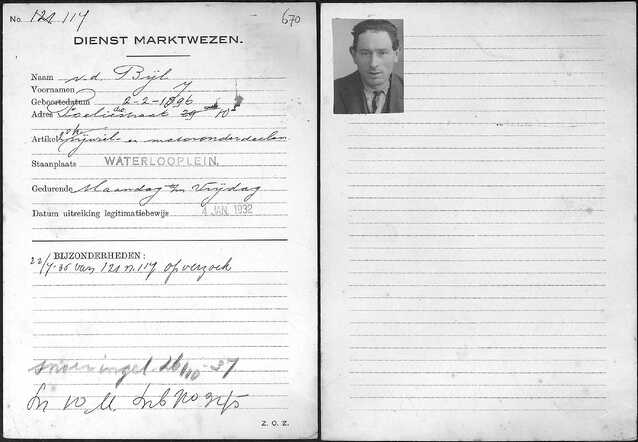 No. 121 117
670
DIENST MARKTWEZEN.
Naam v.d. Bijl
Voornamen J
Geboortedatum 2-2-1896
Adres 39 10
Artikel Rijwiel- en motoronderdeelen
Staanplaats WATERLOOPLEIN.
Gedurende Maandag t/m Vrijdag
Datum uitreiking legitimatiebewijs 4 JAN. 1932
BIJZONDERHEDEN:
22/7-35 van 121 n. 117 op verzoek
26/10-37
Z. O. Z.